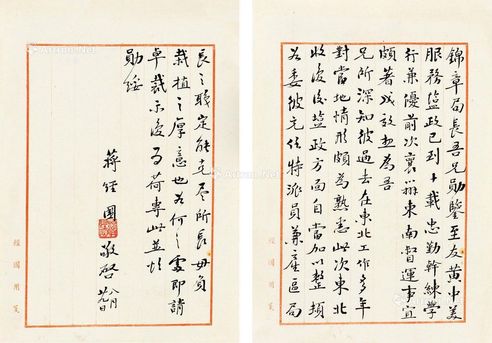 錦章局長吾兄勛鑒至友黃中美
服務鹽政已到十載忠勤幹練學
行兼優前次襄辦東南督運事宜
頗著成效想為吾
兄所深知彼過去在東北工作多年
對當地情形頗為熟悉此次東北
收復後鹽政方面自當加以整頓
若委彼充任特派員兼產區局
經國用箋
長之職定能克盡所長毋負
栽植之厚意也如何之處即請
卓裁示復為荷專此並頌
勛綏
蔣經國
敬啓
八月
廿九日
經國用箋